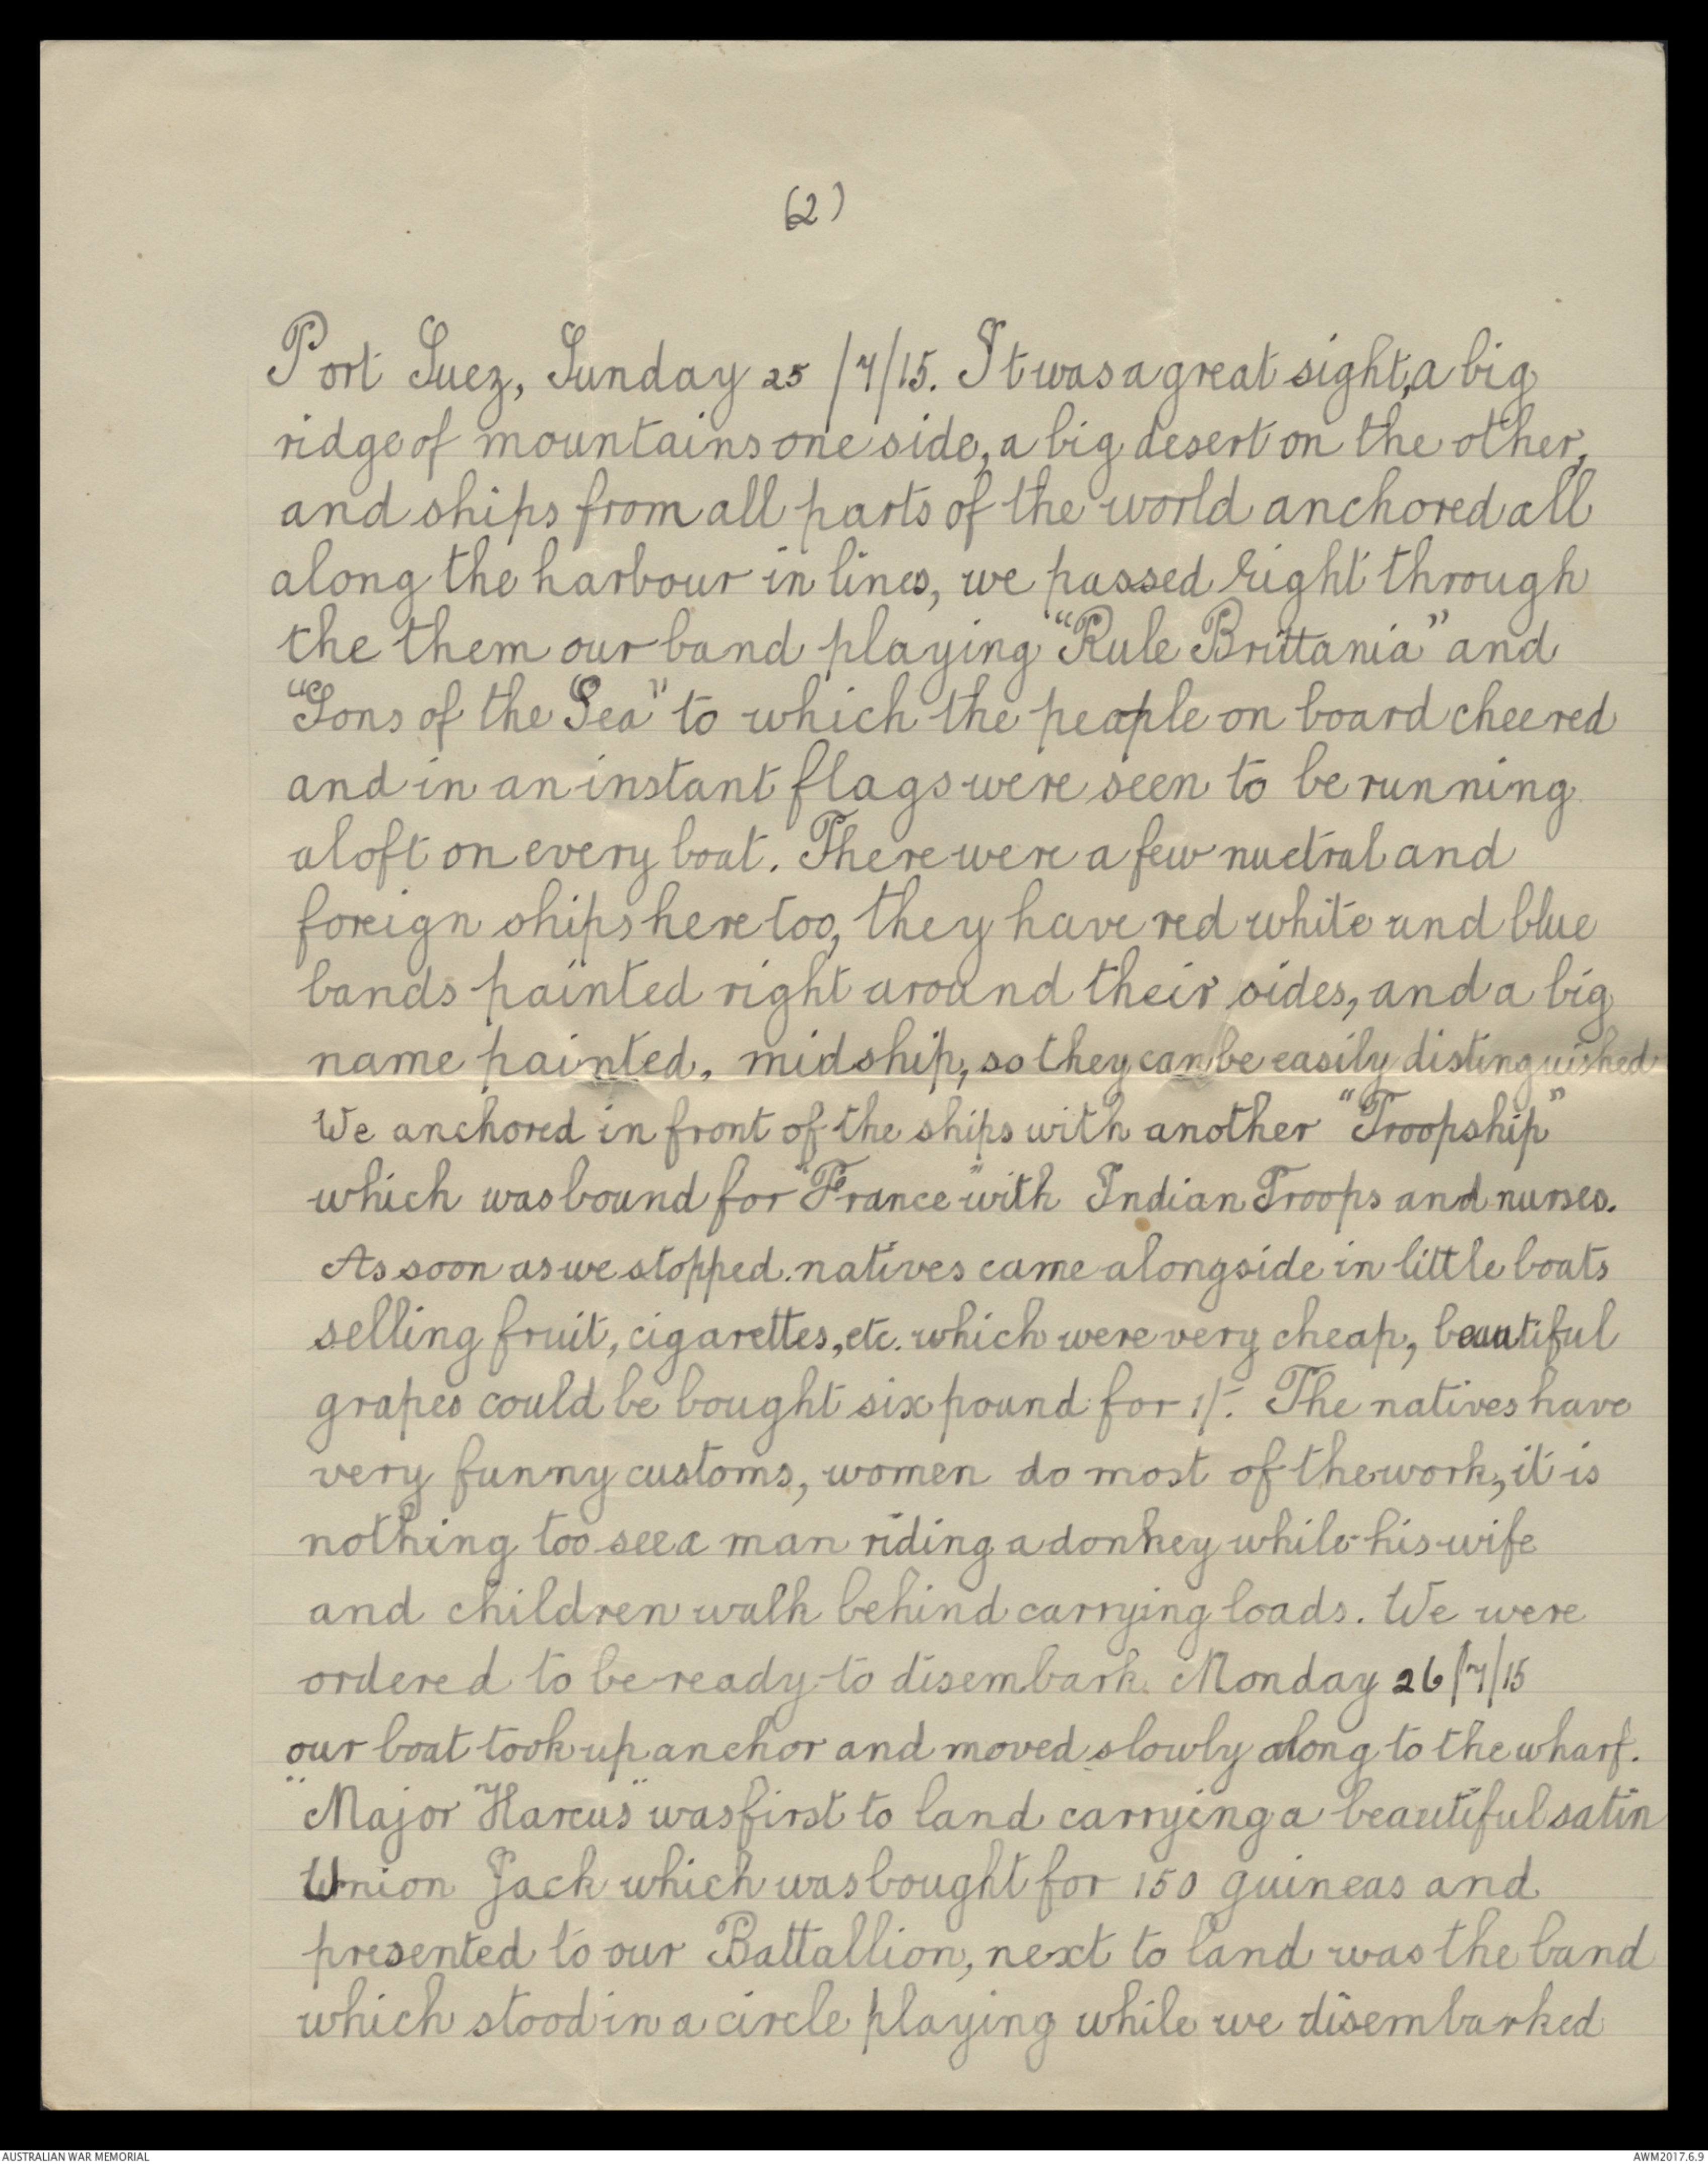 (2)
Port Suez, Sunday 25/7/15. It was a great sight, a big
ridge of mountains one side, a big desert on the other,
and ships from all parts of the world anchored all
along the harbour in lines, we passed right through
the them our band playing "Rule Brittania" and
"Sons of the Sea" to which the people on board cheered
and in an instant flags were seen to be running
aloft on every boat. There were a few nuetral and
foreign ships here too, they have red white and blue
bands painted right around their sides, and a big
name painted, midship, so they can be easily distinguished
We anchored in front of the ships with another "Troopship"
which was bound for "France" with Indian Troops and nurses.
As soon as we stopped. natives came alongside in little boats
selling fruit, cigarettes, etc. which were very cheap, beautiful
grapes could be bought six pound for 1/-. The natives have
very funny customs, women do most of the work, it is
nothing too see a man riding a donkey while his wife
and children walk behind carrying loads. We were
ordered to be ready to disembark. Monday 26/7/15
our boat took up anchor and moved slowly along to the wharf.
"Major Harcus" was first to land carrying a beautiful satin
Union Jack which was bought for 150 guineas and
presented to our Battallion, next to land was the band
which stood in a circle playing while we disembarked
AUSTRALIAN WAR MEMORIAL
AWM2017.6.9